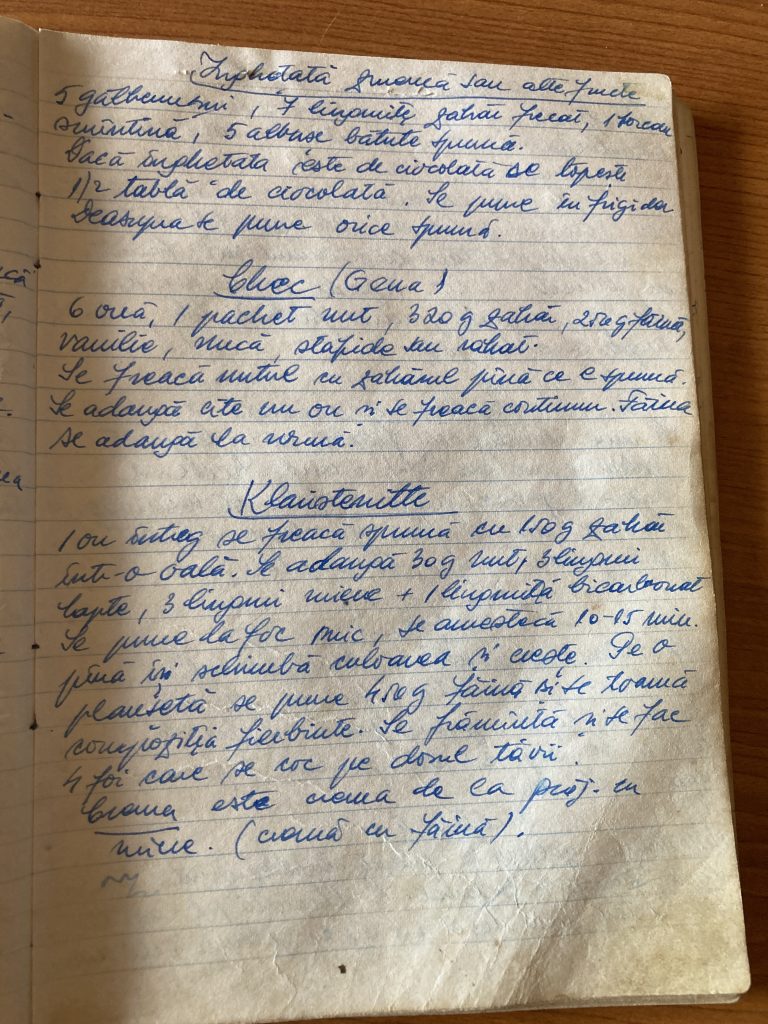 Înghețată zmeură sau alte fructe
5 gălbenușuri, 7 lingurițe zahăr frecat, 1 borcan
smîntînă, 5 albușe bătute spumă.
Dacă înghețata este de ciocolată se topește
1/2 tablă de ciocolată. Se pune în frigider
Deasupra se pune orice spumă.
Chec (Gena)
6 ouă, 1 pachet unt, 320 g zahăr, 250 g făină,
vanilie, nucă, stafide sau rahat.
Se freacă untul cu zahărul pînă ce e spumă.
Se adaugă cîte un ou și se freacă continuu. Făina
se adaugă la urmă.
1 ou întreg se freacă spumă cu 150 g zahăr
într-o oală. Se adaugă 30 g unt, 3 linguri
lapte, 3 linguri miere + 1 linguriță bicarbonat
Se pune la foc mic, se amestecă 10-15 min.
pînă își schimbă culoarea și crește. Pe o
planșetă se pune 450 g făină și se toarnă
compoziția fierbinte. Se frămîntă și se fac
4 foi care se coc pe dosul tăvii.
Crema este crema de la prăj. cu
miere. (cremă cu făină).